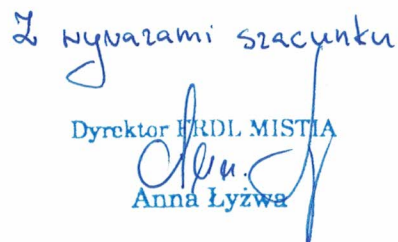 Z wyrazami szacunku
Dyrektor FRDL MISTIA
Anna Łyżwa